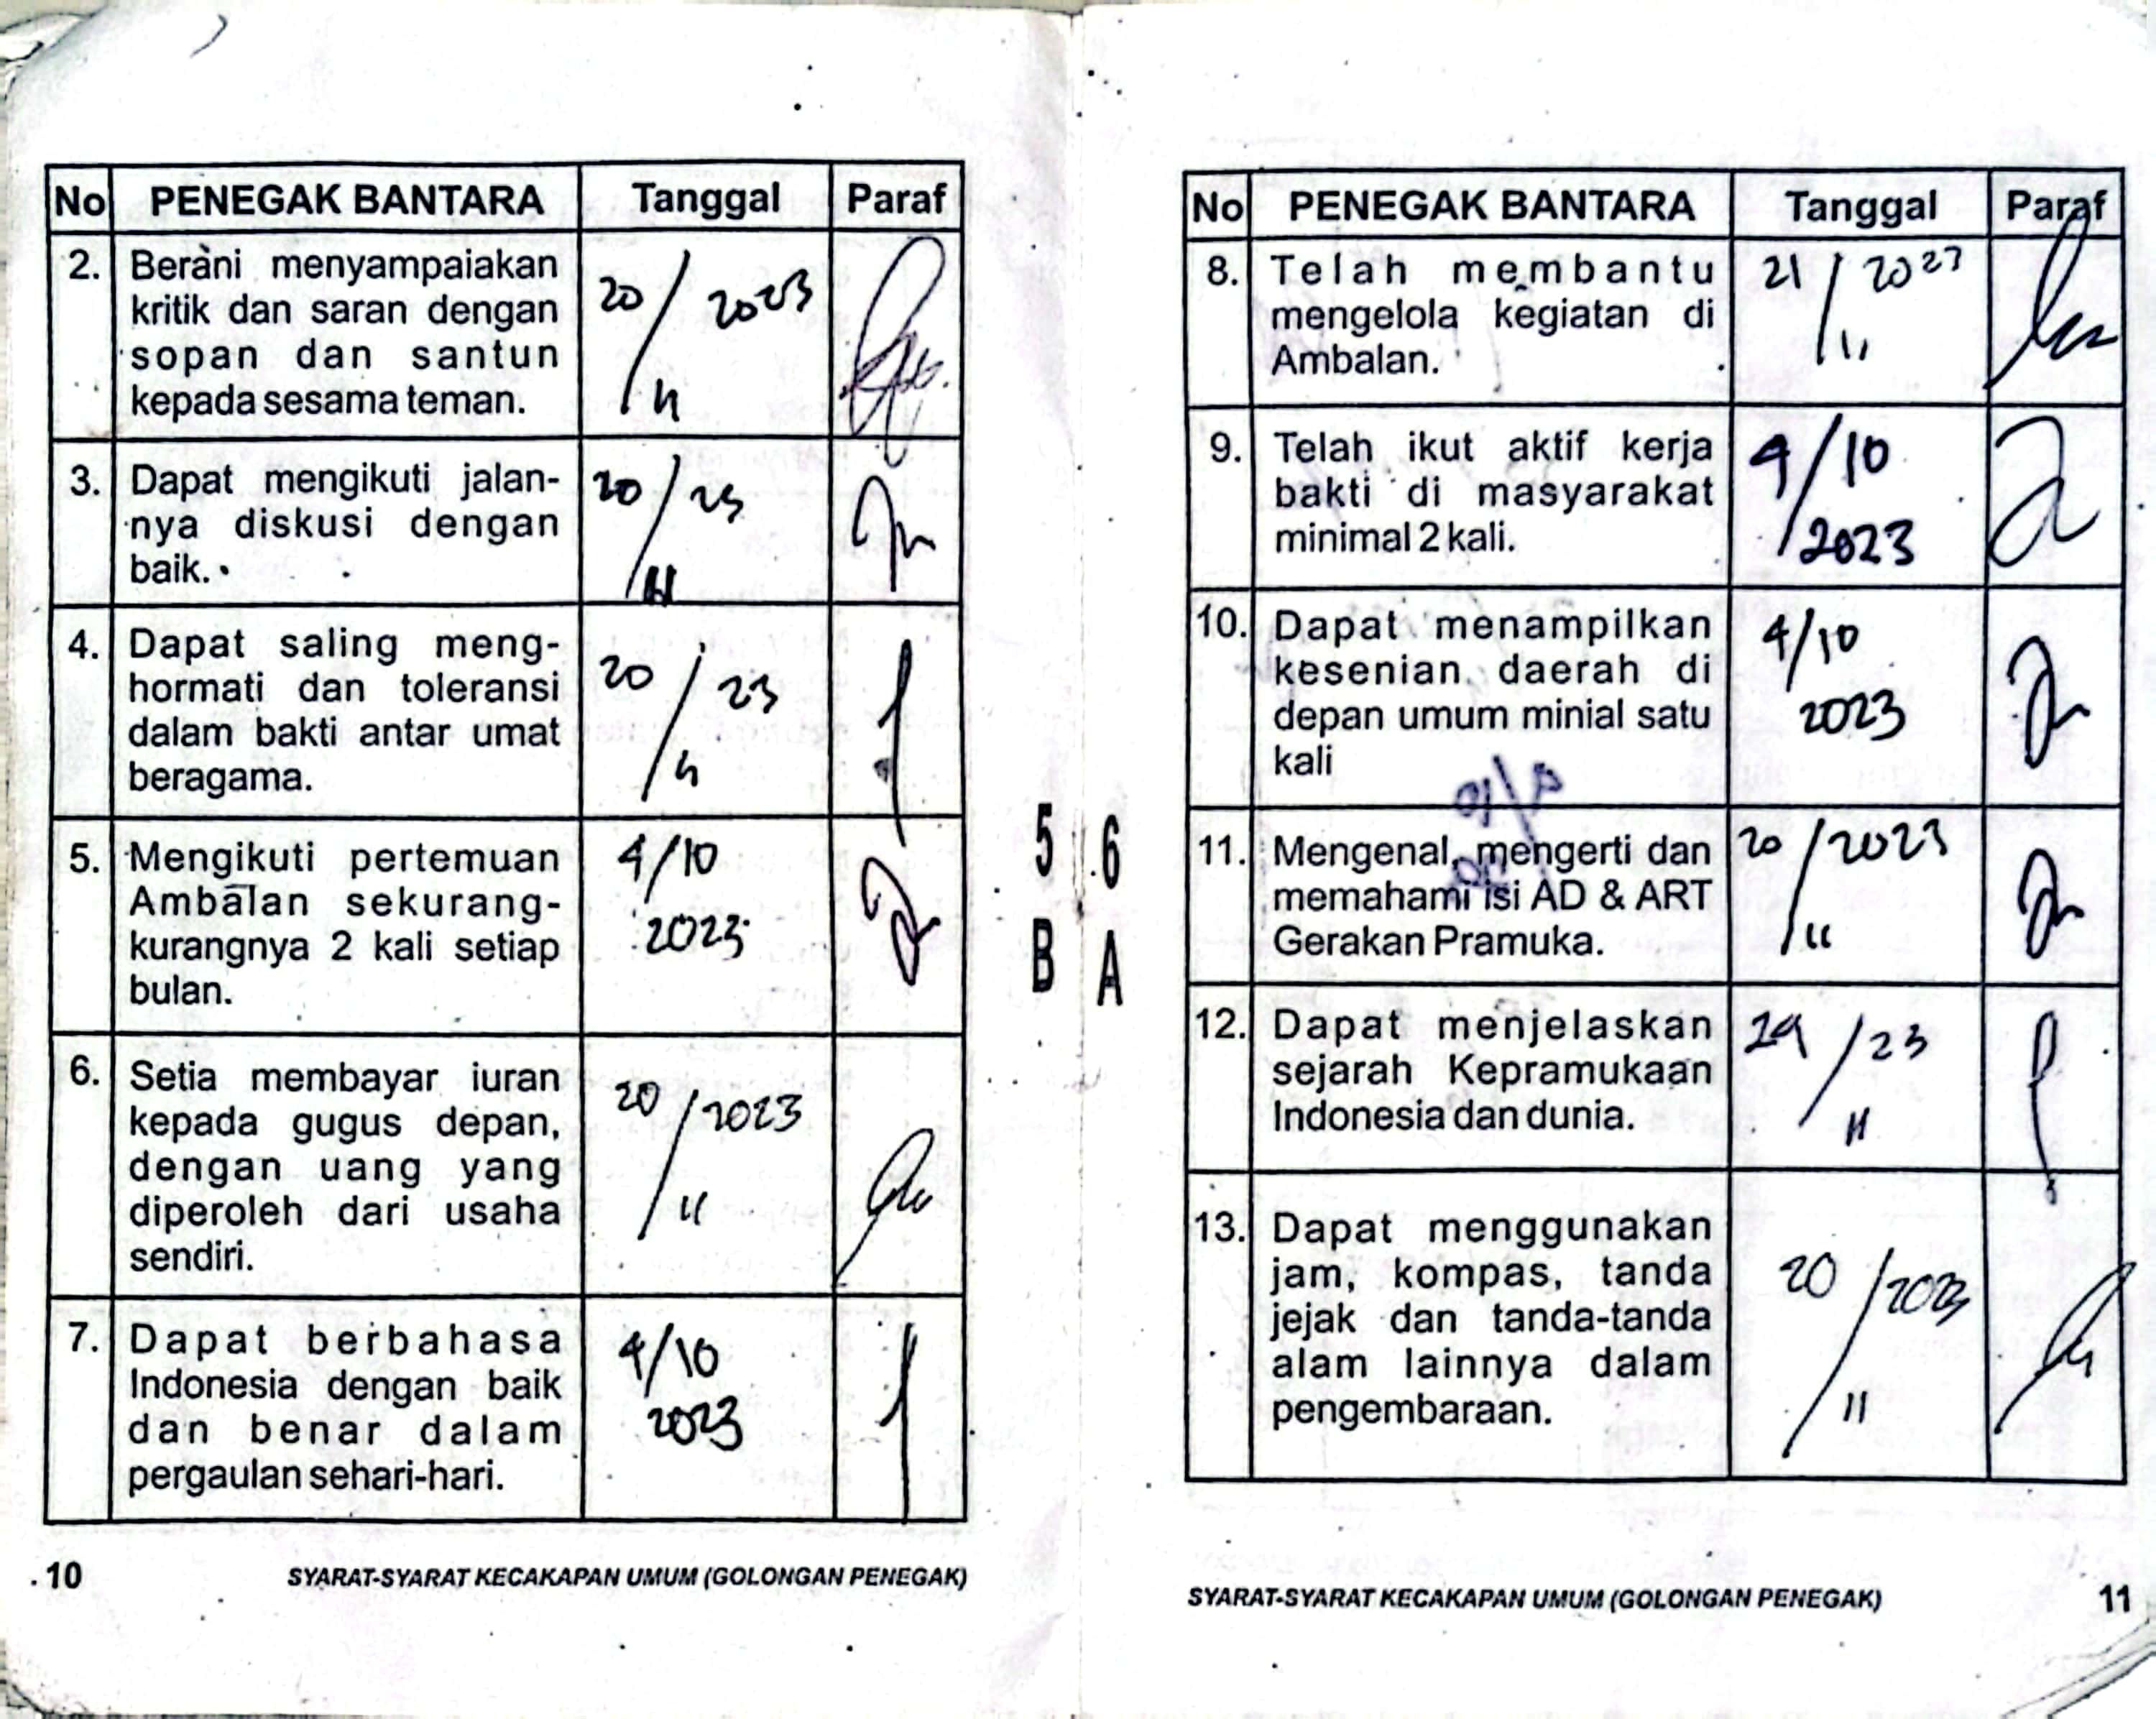 No PENEGAK BANTARA Tanggal Paraf
2. Berani menyampaiakan
kritik dan saran dengan
sopan dan santun
kepada sesama teman.
20 / 2023
11
3. Dapat mengikuti jalan-
nya diskusi dengan
baik.
20 / 23
11
4. Dapat saling meng-
hormati dan toleransi
dalam bakti antar umat
beragama.
20 / 23
11
5. Mengikuti pertemuan
Ambalan sekurang-
kurangnya 2 kali setiap
bulan.
4/10
2023
6. Setia membayar iuran
kepada gugus depan,
dengan uang yang
diperoleh dari usaha
sendiri.
20 / 2023
11
7. Dapat berbahasa
Indonesia dengan baik
dan benar dalam
pergaulan sehari-hari.
4/10
2023
10 SYARAT-SYARAT KECAKAPAN UMUM (GOLONGAN PENEGAK)
5 6
B A
No PENEGAK BANTARA Tanggal Paraf
8. Telah membantu
mengelola kegiatan di
Ambalan.
21 /
11
9. Telah ikut aktif kerja
bakti di masyarakat
minimal 2 kali.
4/10
2023
10. Dapat menampilkan
kesenian daerah di
depan umum minial satu
kali
4/10
2023
11. Mengenal, mengerti dan
memahami isi AD & ART
Gerakan Pramuka.
20 / 2023
11
12. Dapat menjelaskan
sejarah Kepramukaan
Indonesia dan dunia.
/ 23
11
13. Dapat menggunakan
jam, kompas, tanda
jejak dan tanda-tanda
alam lainnya dalam
pengembaraan.
20 / 2023
11
SYARAT-SYARAT KECAKAPAN UMUM (GOLONGAN PENEGAK) 11